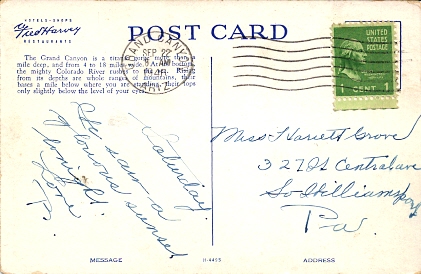 HOTELS-SHOPS
Fred Harvey
RESTAURANTS
POST CARD
The Grand Canyon is a titanic gorge more than a
mile deep, and from 4 to 18 miles wide. At the bottom
the mighty Colorado River rushes to the sea. Rising
from its depths are whole ranges of mountains, their
bases a mile below where you are standing, their tops
only slightly below the level of your eyes.
GRAND CANYON
SEP 22
ARIZ
UNITED STATES
POSTAGE
1 CENT 1
Saturday
So saw a
glorious sunset
tonight.
Love
P.
Miss Harriett Grove
327 St Central ave
So Williamsport
Pa.
MESSAGE
H-4493
ADDRESS